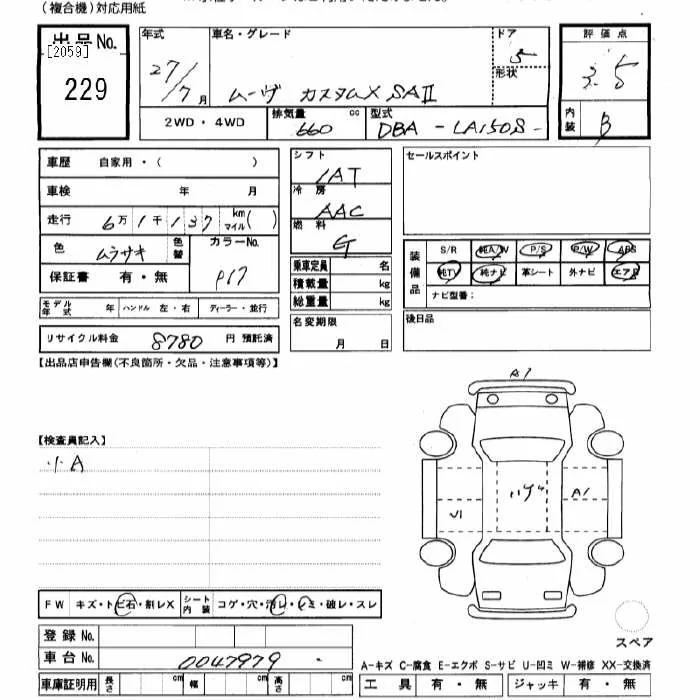 (複合機)対応用紙
出品No.
[2059]
229
年式
27/7月
車名・グレード
ムーヴ カスタムX SAⅡ
ドア
5
形状
評価点
3.5
内装
B
2WD・4WD
排気量 660 cc
型式 DBA - LA150S -
車歴 自家用・( )
車検 年 月
走行 6万1千137 km マイル( )
色 ムラサキ 色替
カラーNo. P17
保証書 有・無
モデル年式 年 ハンドル 左・右 ディーラー・並行
リサイクル料金 8780 円 預託済
シフト
IAT
冷房
AAC
燃料
G
乗車定員 名
積載量 kg
総重量 kg
名変期限
月 日
セールスポイント
装備品
S/R 純A/W P/S P/W ABS
純TV 純ナビ 革シート 外ナビ エアB
ナビ型番:
後日品
【出品店申告欄(不良箇所・欠品・注意事項等)】
【検査員記入】
小A
A1
ハゲ
A1
U1
FW キズ・トビ石・割レX
シート内装 コゲ・穴・汚レ・シミ・破レ・スレ
登録No.
車台No. 0047979
車庫証明用 長さ cm 幅 cm 高さ cm
スペア
A-キズ C-腐食 E-エクボ S-サビ U-凹ミ W-補修 XX-交換済
工具 有・無 ジャッキ 有・無